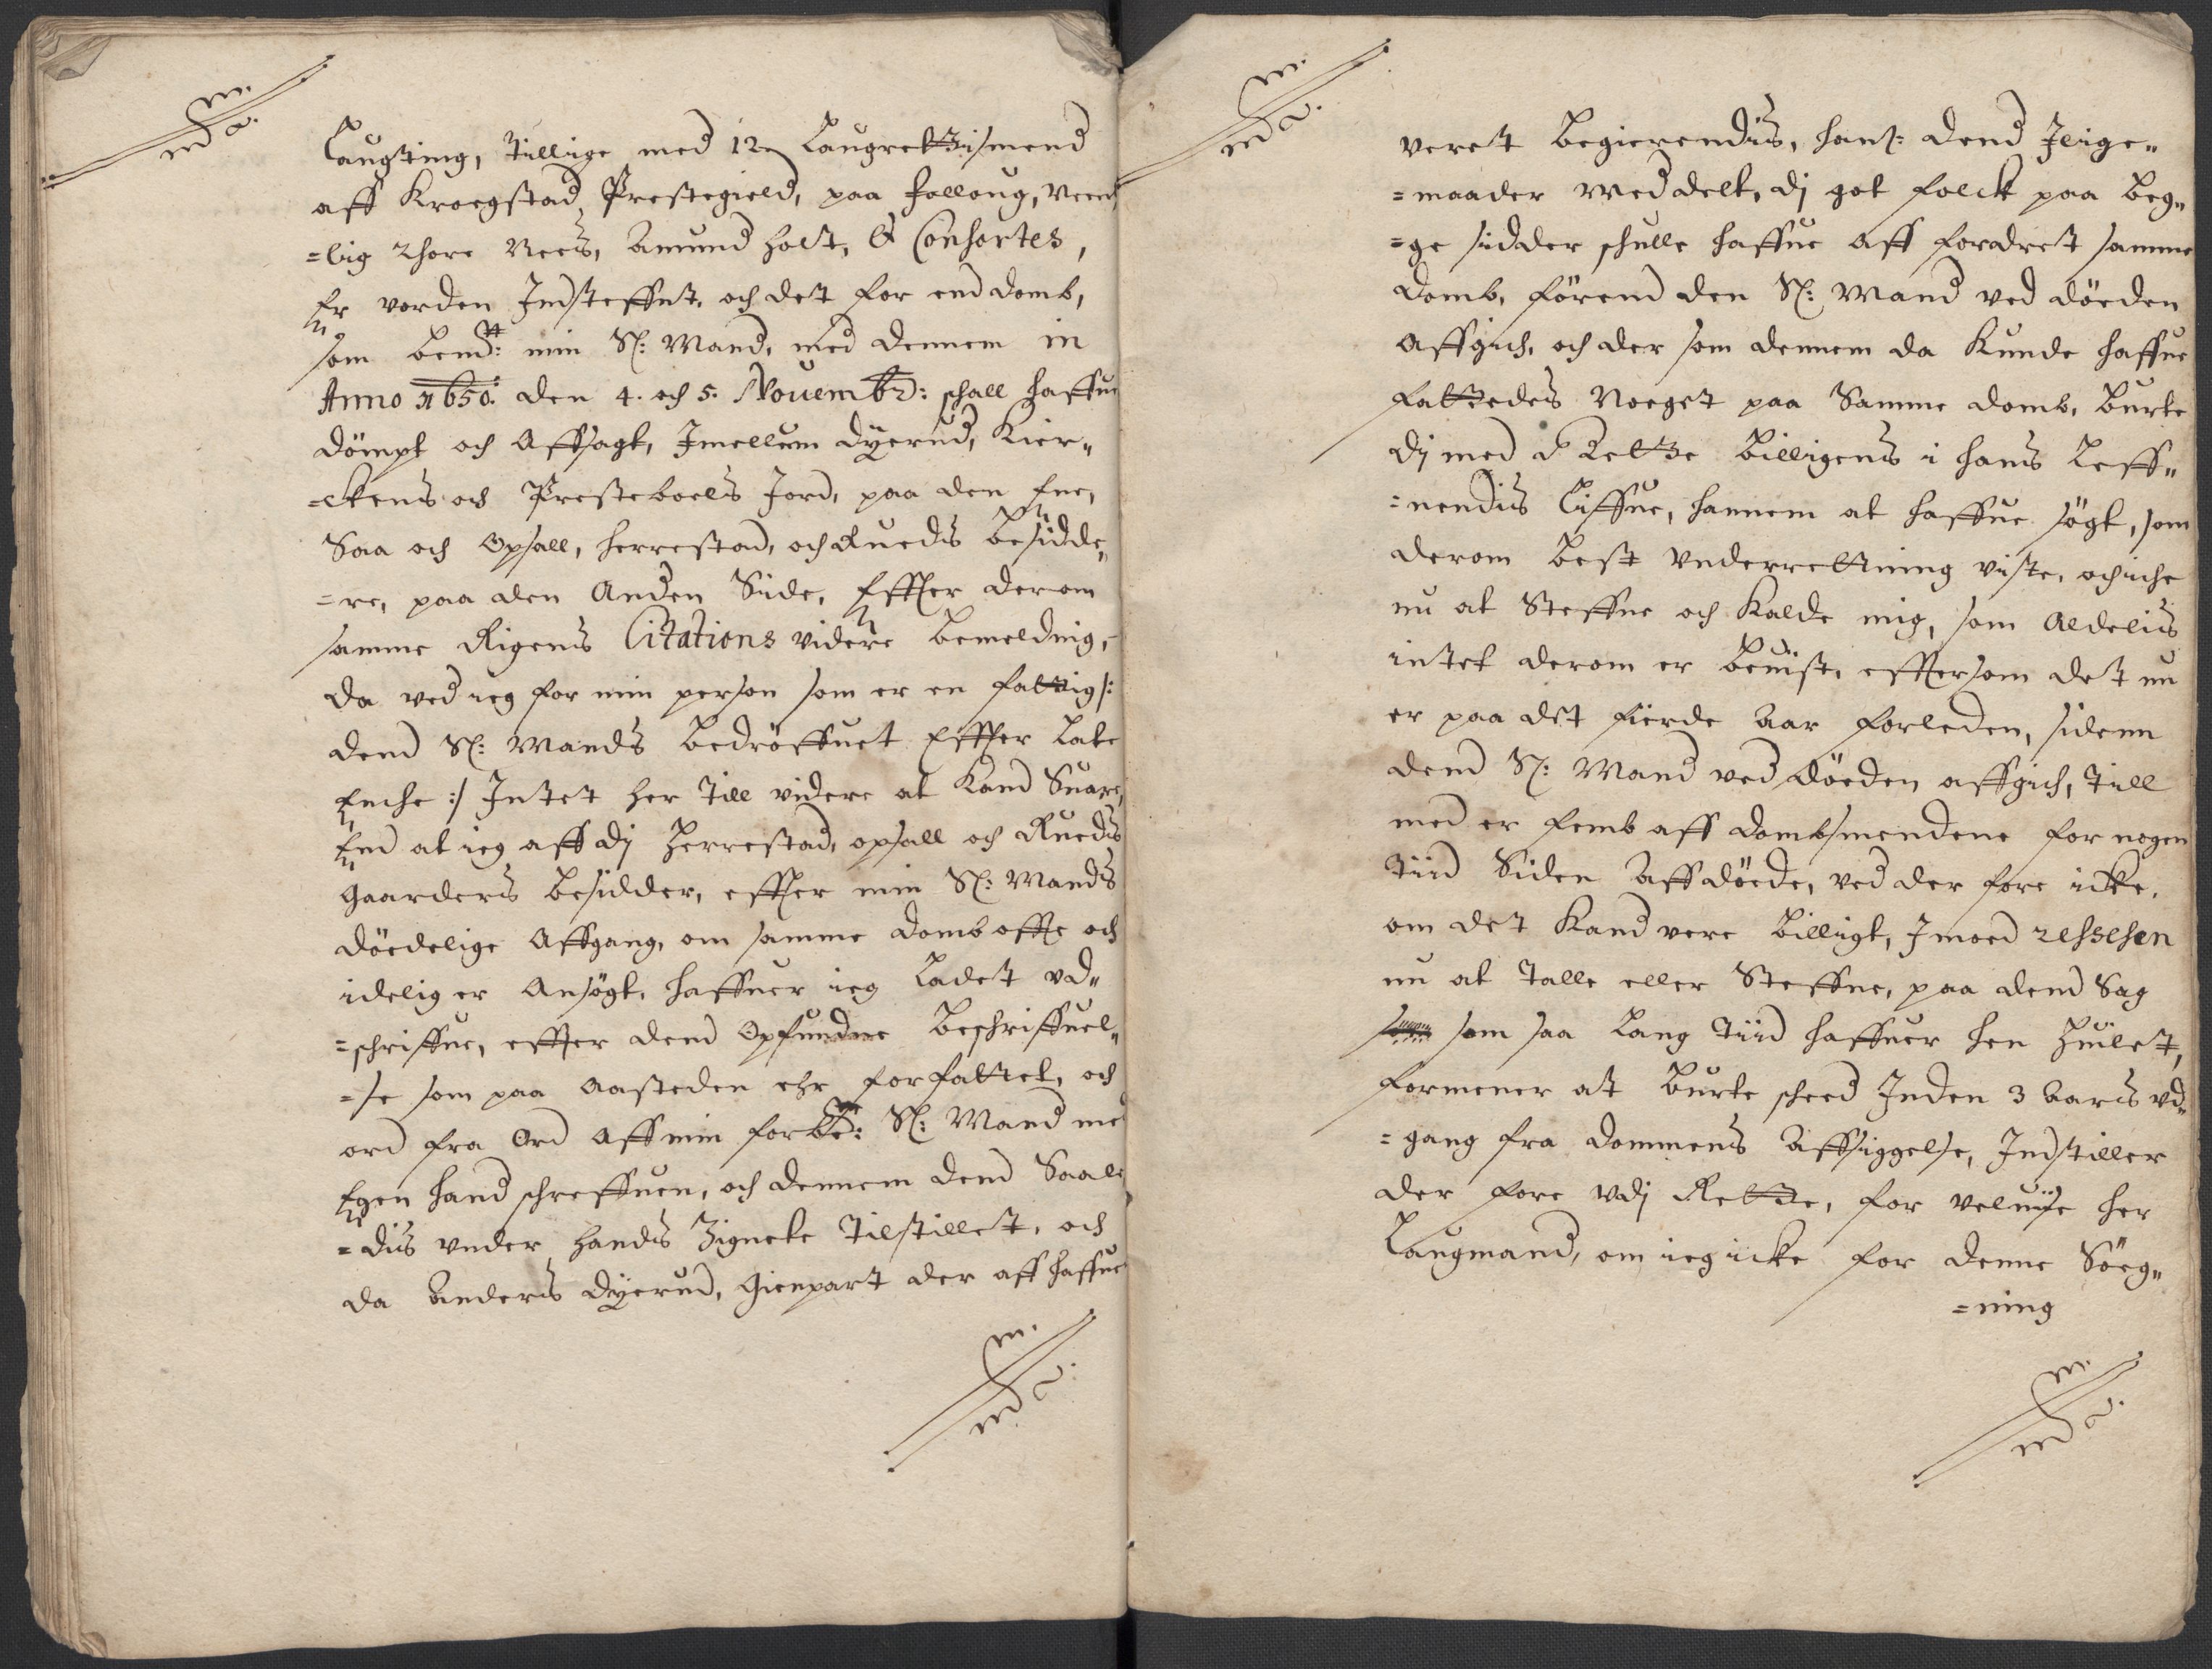 Laugting, Tillige med 12 Laugrettzismend
aff Kroegstad Prestegield, paa Folloug, Neem¬
=lig Thore Nees, Amund Holt, & Consortes,
Er vorden Indsteffnt, och det for end domb,
som bemte: min Sl: Mand, med dennem in
Anno 1650. den 4. och 5. Nouembr: schall haffue
dömpt och Affsagt, Imellum Dyerud, Kier„
=ckens och Presteboels Jord, paa den Ene,
Saa och Opsall, Herrestad, och Rueds Besidde„
=re, paa den Anden Side, Effter derom
samme Rigens Citations videre bemeldnig,
da ved ieg for min person som er en fattig /:
dend Sl: Mands bedröffuet Effter late
Enche :/ Intet her Till videre at Kand Suare,
End at ieg aff dj Herrestad, opsall och Rueds
gaarders besidder, effter min Sl: Mands
döedelige Affgang, om samme domb offte och
idelig er Ansögt, haffuer ieg ladet vd„
=schriffue, effter dend Opfundne Beschriffuel„
=se som paa Aasteden ehr forfattet, och
ord fra Ord Aff min forbte: Sl: Mand med
Egen hand schreffuen, och dennem dend Saale
=dis vnder hands Zignete Tilstillet, och
da Anders Dyerud, Gienpart der aff haffue
m.
m a.
m.
m a.
veret begierendis, hans: dend Jlige„
=maader Meddelt, dj got folck paa beg„
=ge sidder schulle haffue Aff fordret samme
domb, förend den Sl: Mand ved döeden
Affgich, och der som dennem da Kunde haffue
fattedes Noeget paa Samme domb, burte
dj med Rettze billigens i hans leff„
=nendis Liffue, hannem at haffue sögt, som
derom best vnderrettning viste, och iche
nu at Steffne och Kalde mig, som Aldelis
intet derom er beuist, efftersom det nu
er paa det fierde Aar forleden, sidenn
dend Sl: Mand ved döeden affgich, Till
med er femb aff dombsmendene for nogen
Tiid Siden Affdöede, ved der fore icke,
om det Kand vere billigt, Imoed recessen
nu at Talle eller Steffne, paa dend Sag
som saa lang Tiid haffuer hen huilet,
formener at burte scheed Inden 3 Aars vd„
=gang fra dommens Affsiggelse, Indstiller
der fore vdj Rette, for veluise her
Laugmand, om ieg icke for denne Söeg„
=ning
m.
m a.
m.
m a.